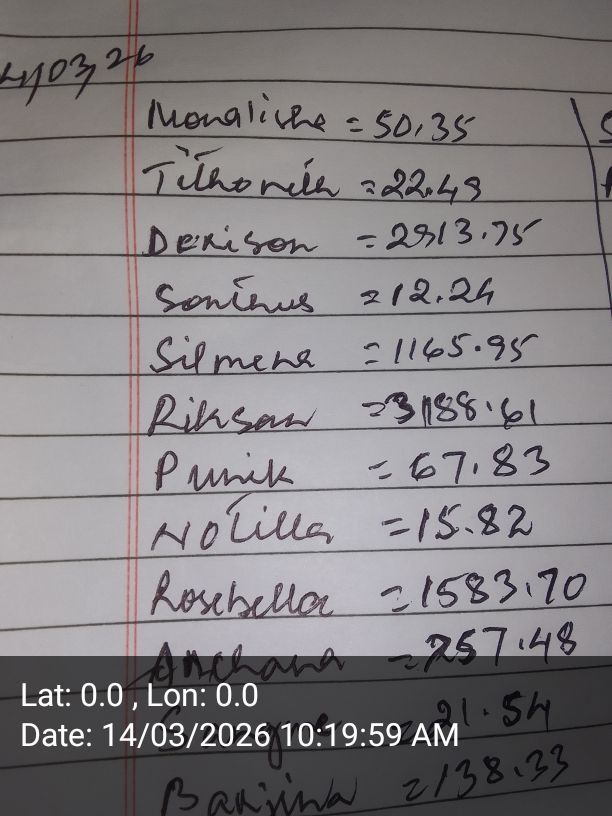 4/03/26
Monalisha = 50.35
Tithonila = 22.49
Denison = 2913.75
Sonthus = 12.24
Silmena = 1165.95
Riksan = 3188.61
Punik = 67.83
Notilla = 15.82
Rosebella = 1583.70
Anchana = 257.48
= 21.54
Banjina = 138.33
Lat: 0.0 , Lon: 0.0
Date: 14/03/2026 10:19:59 AM